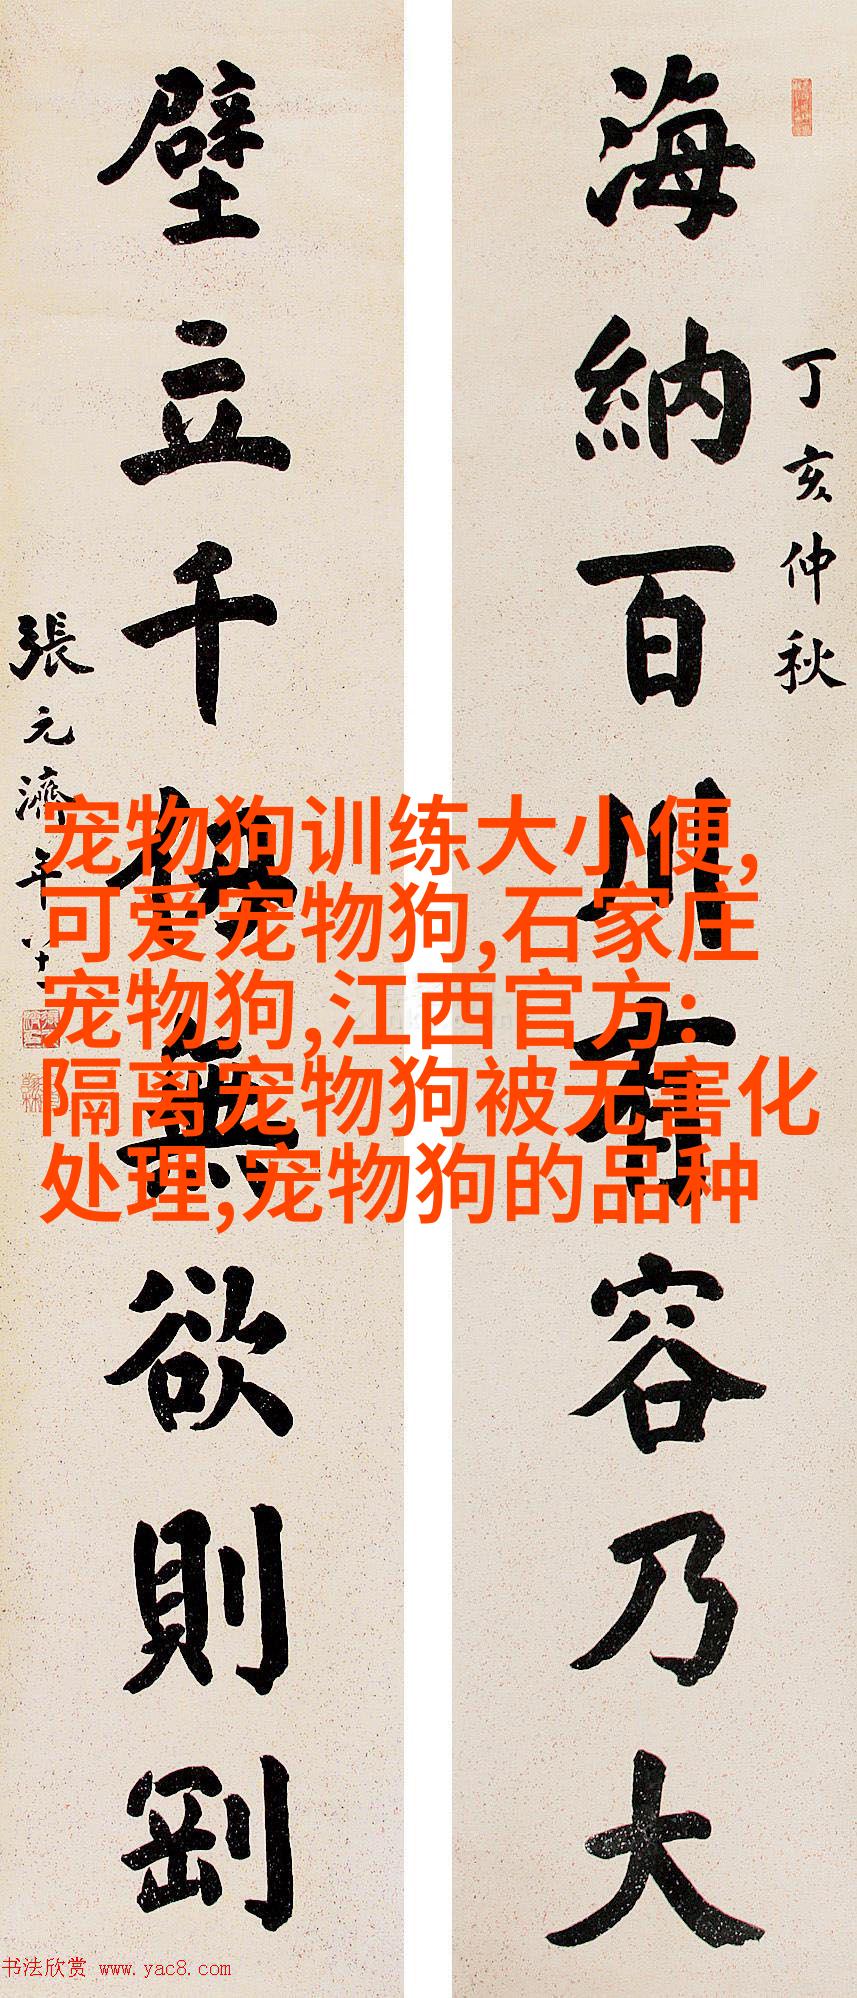 海納百川有容乃大
丁亥仲秋
壁立千仞無欲則剛
張元濟年八十一
宠物狗训练大小便,
可爱宠物狗,石家庄
宠物狗,江西官方:
隔离宠物狗被无害化
处理,宠物狗的品种
书法欣赏 www.yac8.com